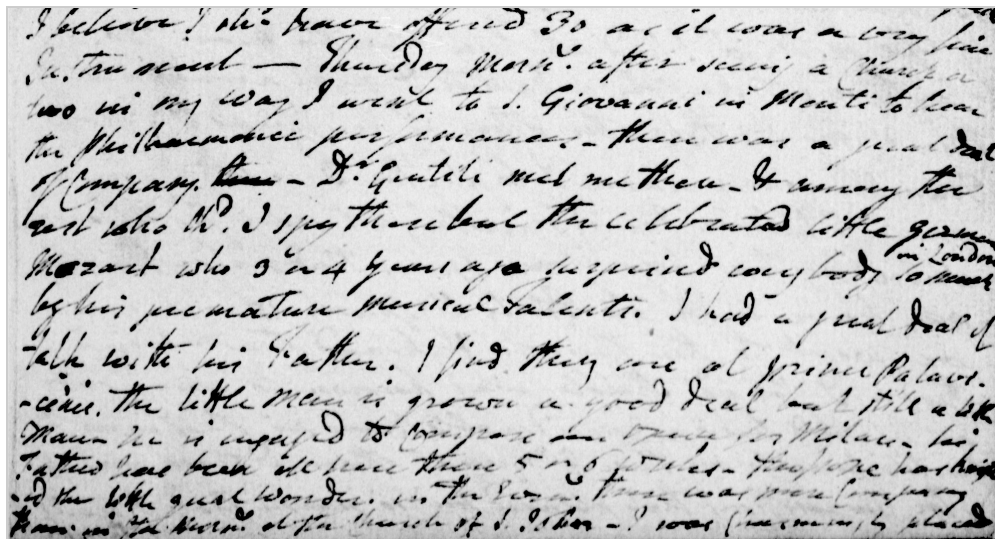 I believe I shd have offerd 30 as it was a very fine
Instrument — Thursday Morng. after seeing a Church or
two in my way I went to S. Giovanni in Monti to hear
the Philharmonic performances - there was a great deal
of Company. there - Dr. Gentili met me there - & among the
rest who shd. I spy there but the celebrated little german
Mozart who 3 or 4 years ago surprised everybody in London so much
by his premature musical Talents. I had a great deal of
talk with his Father. I find they are at prince Palavi-
-cini's. The little Man is grown a good deal but still a little
man - he is engaged to compose an Opera for Milan - his
Father has been ill here these 5 or 6 weeks - the pope has knight
-ed the little great wonder. in the Eveng. there was more Company
than in the Morng. at the church of S. - I was charmingly placed